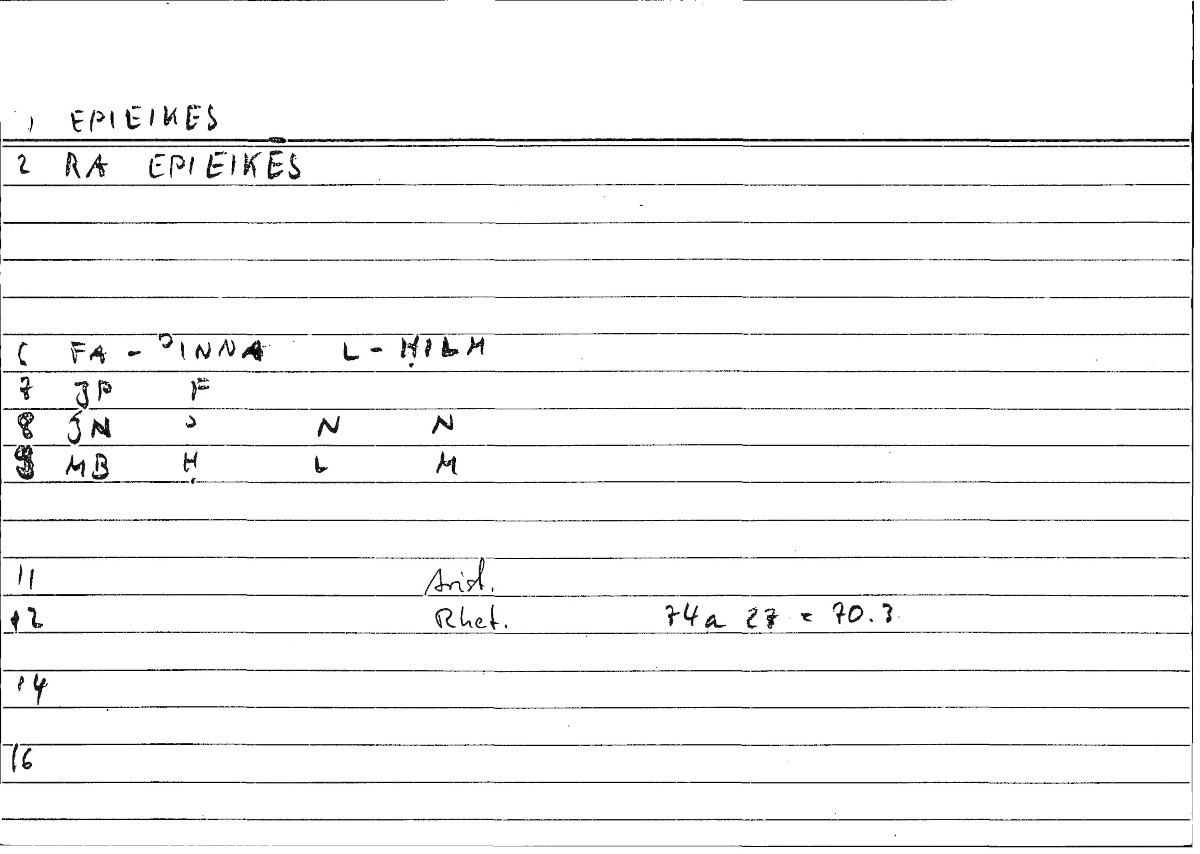 1 EPIEIKES
2 RA EPIEIKES
6 FA - ʾINNA L - ḤILM
7 JP F
8 JN ʾ N N
9 MB Ḥ L M
11 Arist.
12 Rhet. 74a 27 = 70.3
14
16